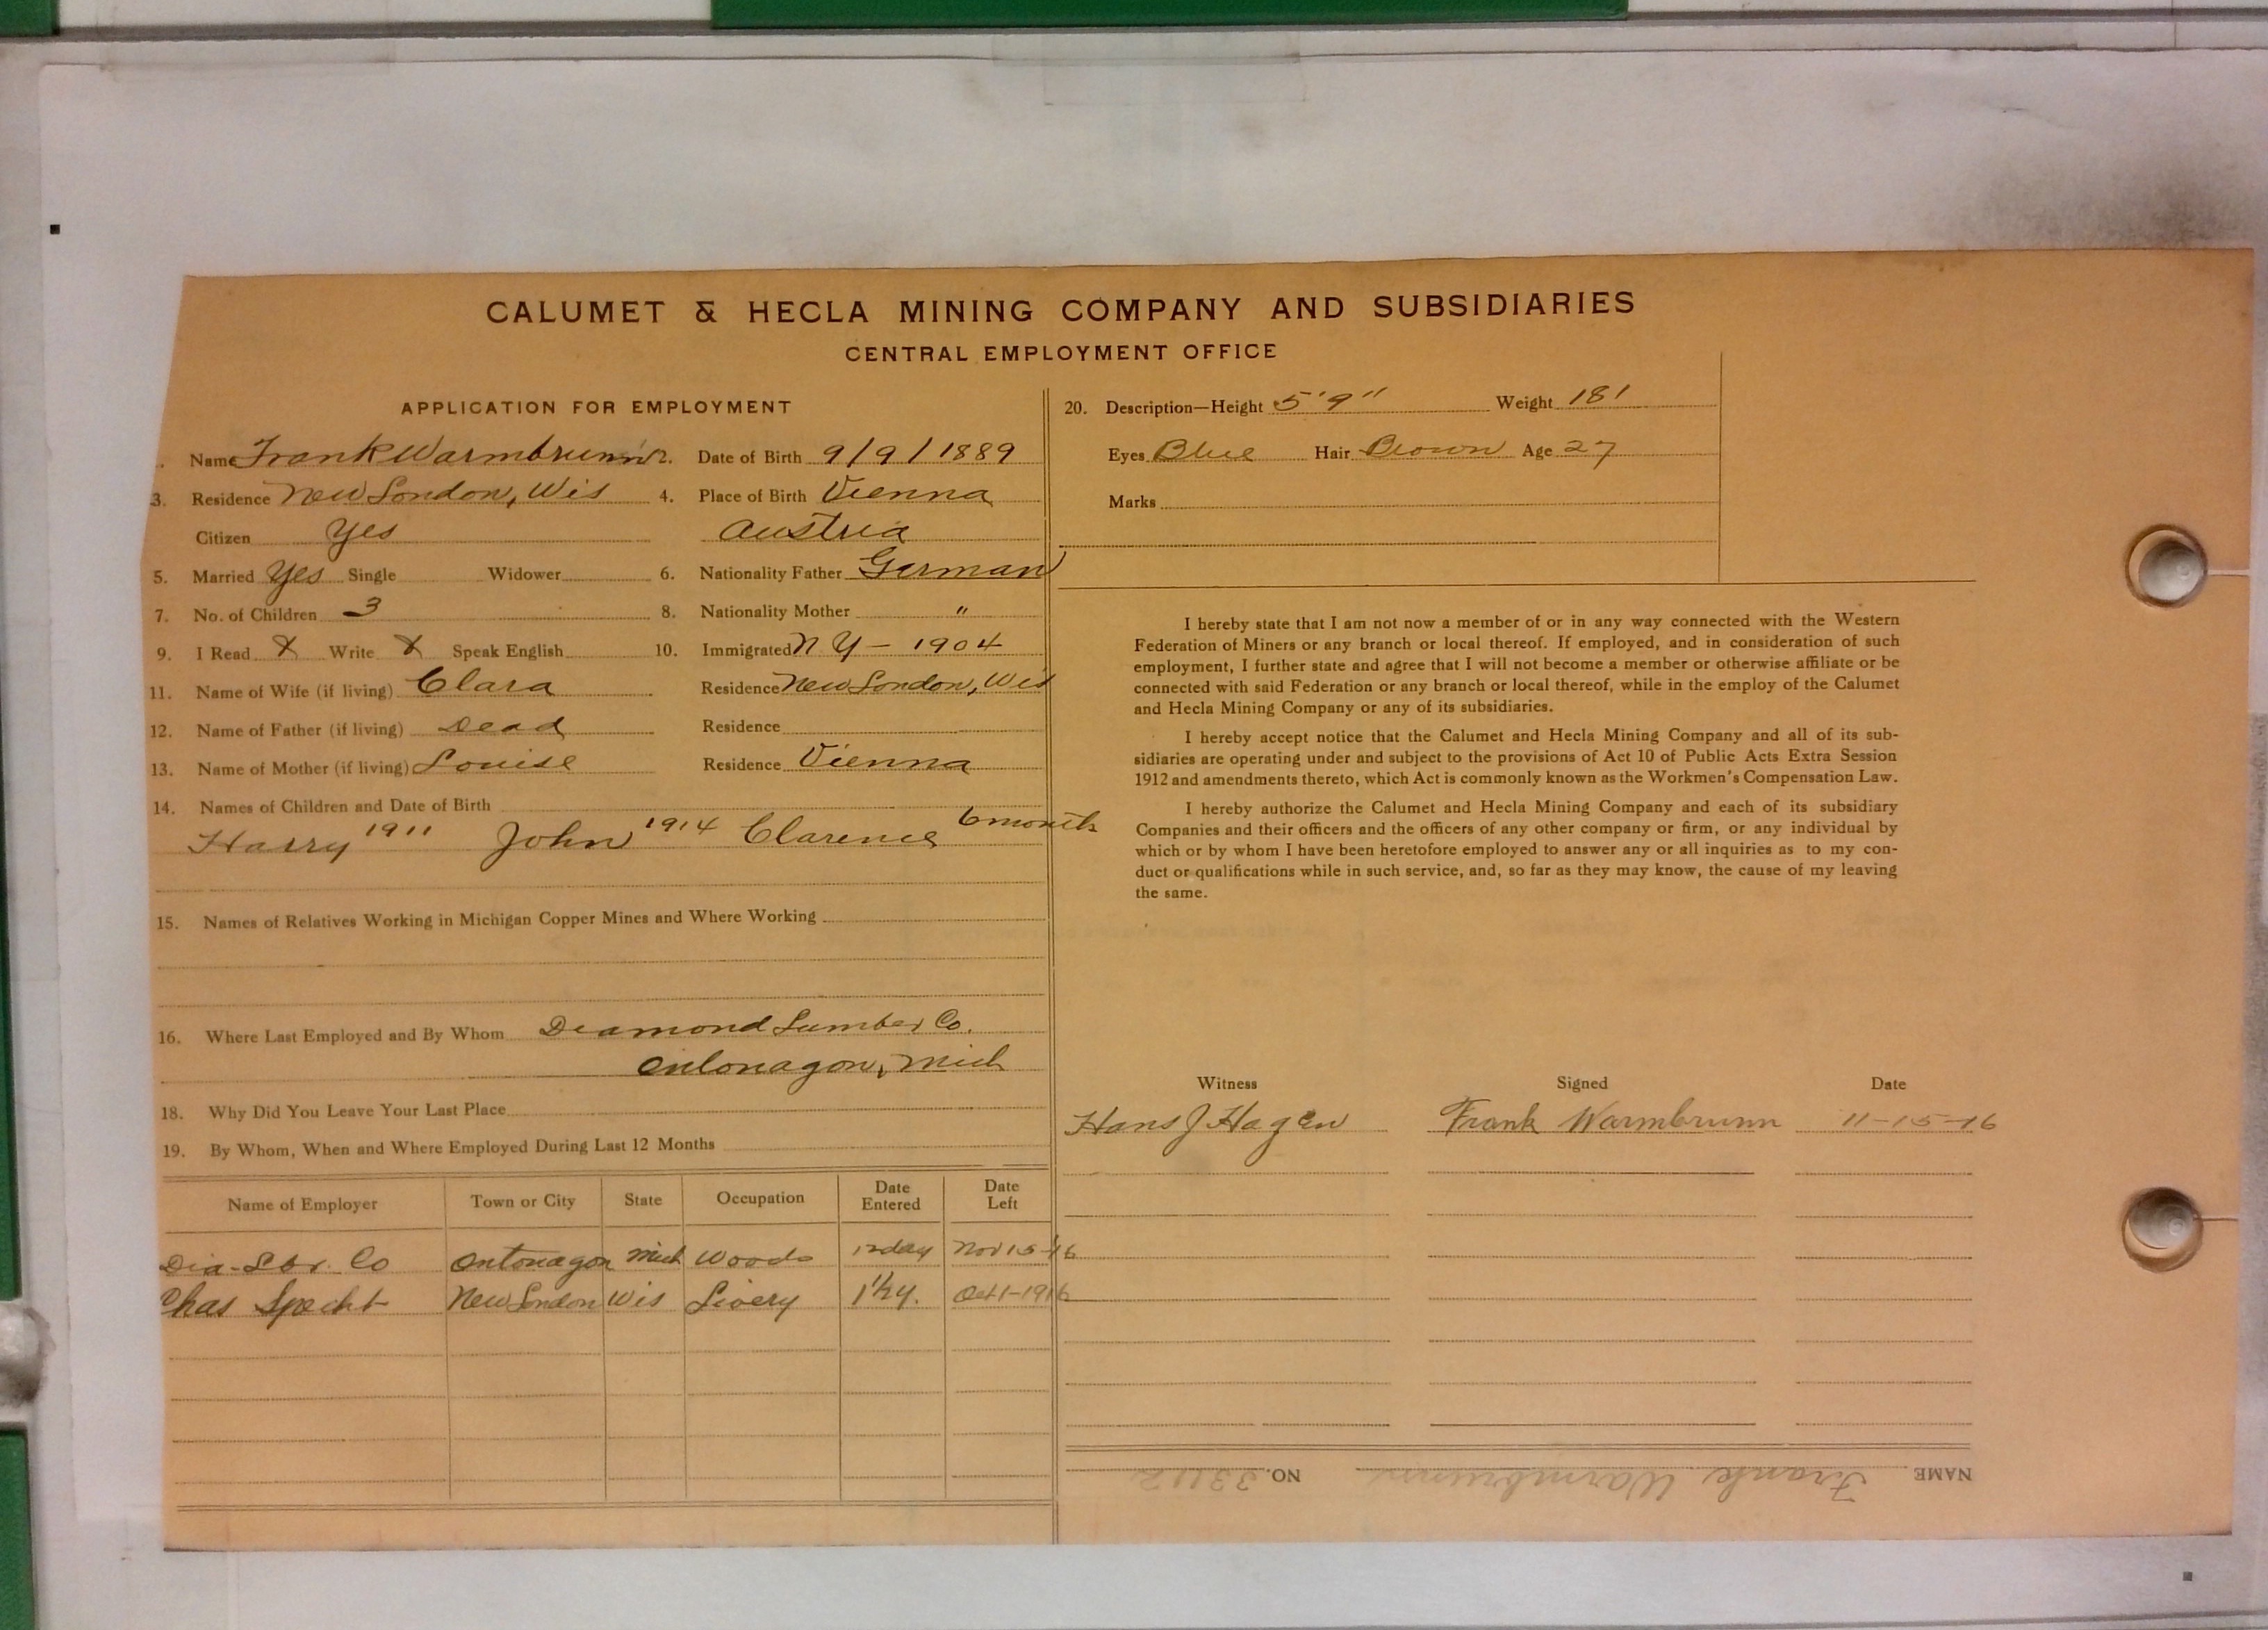 CALUMET & HECLA MINING COMPANY AND SUBSIDIARIES
CENTRAL EMPLOYMENT OFFICE
APPLICATION FOR EMPLOYMENT
Name Frank Warmbrunn 2. Date of Birth 9/9/1889
3. Residence New London, Wis 4. Place of Birth Vienna
Citizen Yes Austria
5. Married Yes Single Widower 6. Nationality Father German
7. No. of Children 3 8. Nationality Mother "
9. I Read X Write X Speak English 10. Immigrated N Y - 1904
11. Name of Wife (if living) Clara Residence New London, Wis
12. Name of Father (if living) Dead Residence
13. Name of Mother (if living) Louise Residence Vienna
14. Names of Children and Date of Birth
Harry 1911 John 1914 Clarence 6 months
15. Names of Relatives Working in Michigan Copper Mines and Where Working
16. Where Last Employed and By Whom Diamond Lumber Co.
Ontonagon, Mich
18. Why Did You Leave Your Last Place
19. By Whom, When and Where Employed During Last 12 Months
Name of Employer Town or City State Occupation Date Entered Date Left
Dia-Lbr. Co Ontonagon Mich Woods 12 day Nov 15-16
Chas Specht New London Wis Livery 1 1/2 y. Oct 1-1916
20. Description—Height 5'9" Weight 181
Eyes Blue Hair Brown Age 27
Marks
I hereby state that I am not now a member of or in any way connected with the Western
Federation of Miners or any branch or local thereof. If employed, and in consideration of such
employment, I further state and agree that I will not become a member or otherwise affiliate or be
connected with said Federation or any branch or local thereof, while in the employ of the Calumet
and Hecla Mining Company or any of its subsidiaries.
I hereby accept notice that the Calumet and Hecla Mining Company and all of its sub-
sidiaries are operating under and subject to the provisions of Act 10 of Public Acts Extra Session
1912 and amendments thereto, which Act is commonly known as the Workmen's Compensation Law.
I hereby authorize the Calumet and Hecla Mining Company and each of its subsidiary
Companies and their officers and the officers of any other company or firm, or any individual by
which or by whom I have been heretofore employed to answer any or all inquiries as to my con-
duct or qualifications while in such service, and, so far as they may know, the cause of my leaving
the same.
Witness Signed Date
Hans J Hagen Frank Warmbrunn 11-15-16
NAME Frank Warmbrunn NO. 33112